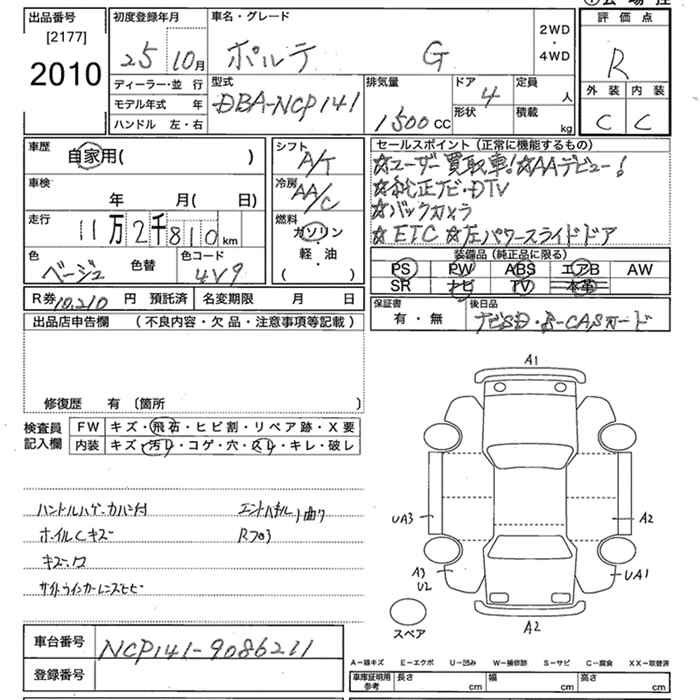 出品番号
[2177]
2010
初度登録年月
25 10月
車名・グレード
ポルテ G
2WD
・
4WD
評価点
R
外装 内装
C C
ディーラー・並 行
モデル年式 年
ハンドル 左・右
型式
DBA-NCP141
排気量
1500 CC
ドア
4
形状
定員
人
積載
kg
車歴
自家用( )
車検
年 月( 日)
走行
11万2千810km
色
ベージュ
色替
色コード
4V9
シフト
A/T
冷房
AA/C
燃料
ガソリン
・
軽・油
( )
セールスポイント(正常に機能するもの)
☆ユーザー買取車!☆AAデビュー!
☆純正ナビ・DTV
☆バックカメラ
☆ETC ☆左パワースライドドア
装備品(純正品に限る)
PS PW ABS エアB AW
SR ナビ TV 本革
R券 10,210 円 預託済 名変期限 月 日
保証書
有・無
後日品
ナビSD・B-CASカード
出品店申告欄 (不良内容・欠品・注意事項等記載)
修復歴 有 (箇所 )
検査員
記入欄
FW キズ・飛石・ヒビ割・リペア跡・X要
内装 キズ・汚レ・コゲ・穴・スレ・キレ・破レ
ハンドルハゲ・カバー付
ホイルCキズ
サイドウインカーレンズヒビ
A1
UA3
A2
A3
U2
UA1
A2
スペア
車台番号 NCP141-9086211
登録番号
A-線キズ E-エクボ U-凹み W-補修跡 S-サビ C-腐食 XX-取替済
車庫証明用
参考
長さ cm
幅 cm
高さ cm